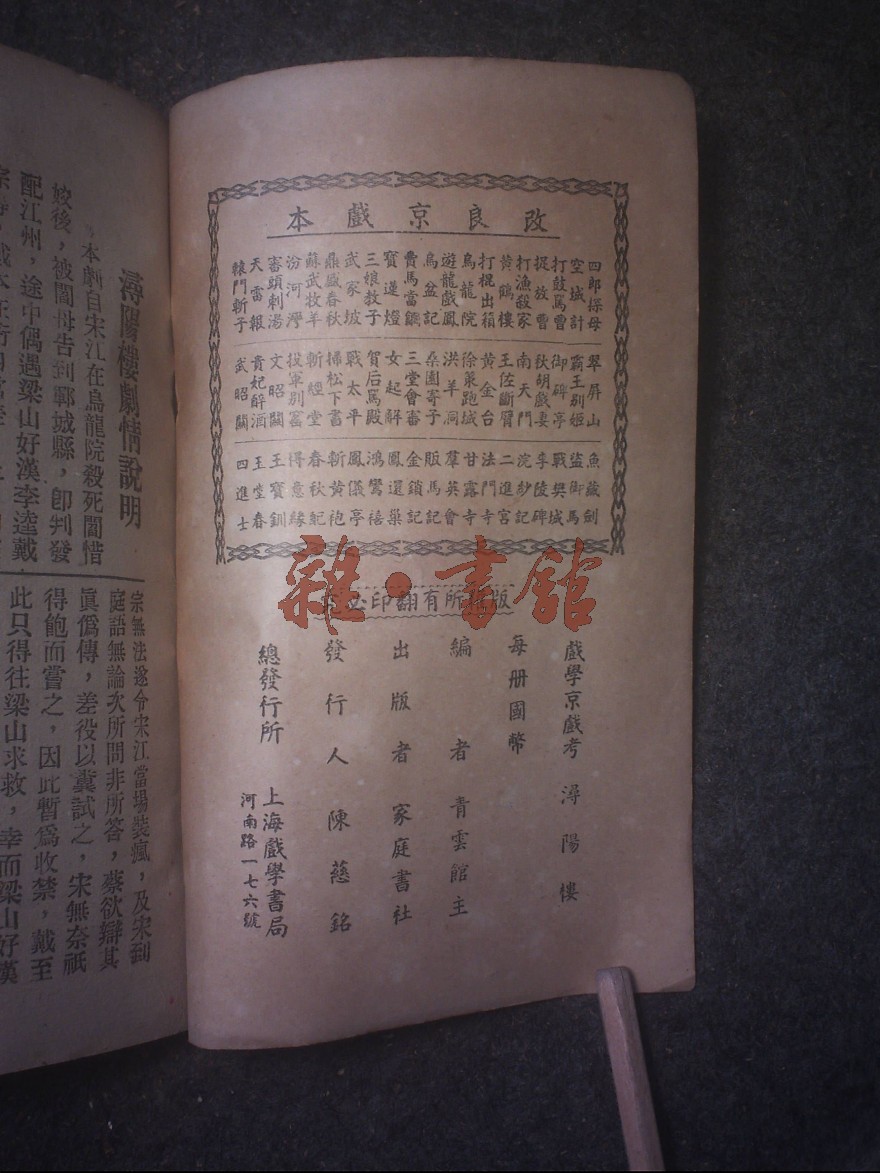 改良京戲本
四郎探母
空城計
打鼓罵曹
捉放曹
打漁殺家
黃鶴樓
打棍出箱
烏龍院
遊龍戲鳳
烏盆記
賣馬當鐧
寶蓮燈
三娘教子
武家坡
鼎盛春秋
蘇武牧羊
汾河灣
審頭刺湯
天雷報
轅門斬子
翠屏山
霸王別姬
御碑亭
秋胡戲妻
南天門
王佐斷臂
黃金台
徐策跑城
洪羊洞
桑園寄子
三堂會審
女起解
賀后罵殿
戰太平
掃松下書
斬經堂
投軍別窰
文昭關
貴妃醉酒
武昭關
魚藏劍
盜御馬
戰樊城
李陵碑
浣紗記
二進宮
法門寺
甘露寺
群英會
販馬記
金鎖記
鳳還巢
鴻鸞禧
鳳儀亭
斬黃袍
春秋配
得意緣
王寶釧
玉堂春
四進士
版權所有翻印必
雜·書館
戲學京戲考 潯陽樓
每册國幣
編者 青雲館主
出版者 家庭書社
發行人 陳慈銘
總發行所 上海戲學書局
河南路一七六號
潯陽樓劇情說明
本劇自宋江在烏龍院殺死閻惜
姣後，被閻母告到鄆城縣，卽判發
配江州，途中偶遇梁山好漢李逵戴
宗無法遂令宋江當場裝瘋，及宋到
庭語無論次所問非所答，蔡欲辯其
眞僞傳，差役以糞試之，宋無奈祇
得飽而嘗之，因此暫爲收禁，戴至
此只得往梁山求救，幸而梁山好漢